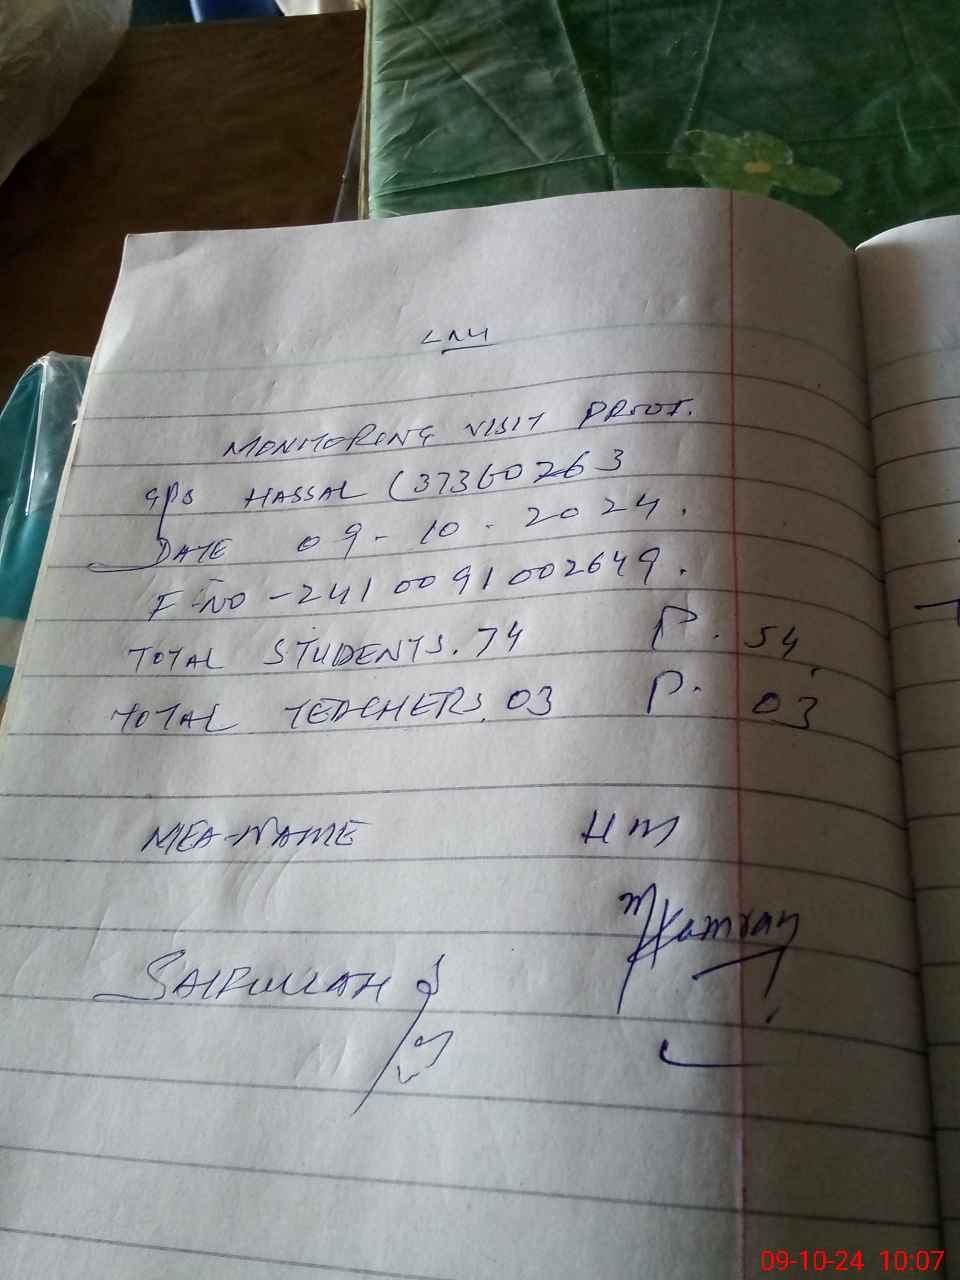 MONITORING VISIT PROOF.
GPS HASSAL (37360263
DATE 09-10-2024.
F-NO-2410091002649.
TOTAL STUDENTS. 74 P. 54
TOTAL TEACHERS. 03 P. 03
MEA-NAME HM
SAIFULLAH M Kamran
09-10-24 10:07